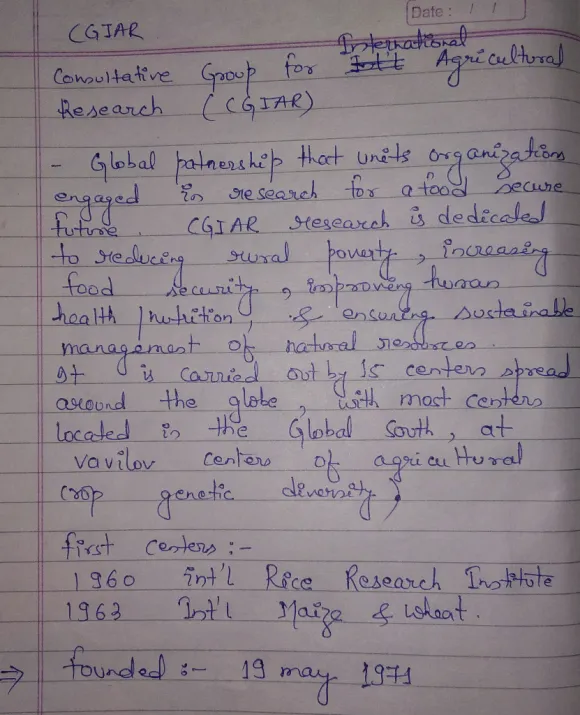 Date : / /
CGIAR
International
Consultative Group for Int'l Agricultural
Research (CGIAR)
- Global patnership that units organizations
engaged in research for a food secure
future. CGIAR research is dedicated
to reducing rural poverty, increasing
food security, improving human
health / nutrition, & ensuring sustainable
management of natural resources.
It is carried out by 15 centers spread
around the globe, with most centers
located in the Global South, at
vavilov centers of agricultural
crop genetic diversity)
first centers :-
1960 int'l Rice Research Institute
1963 Int'l Maize & wheat.
⇒ founded :- 19 may 1971